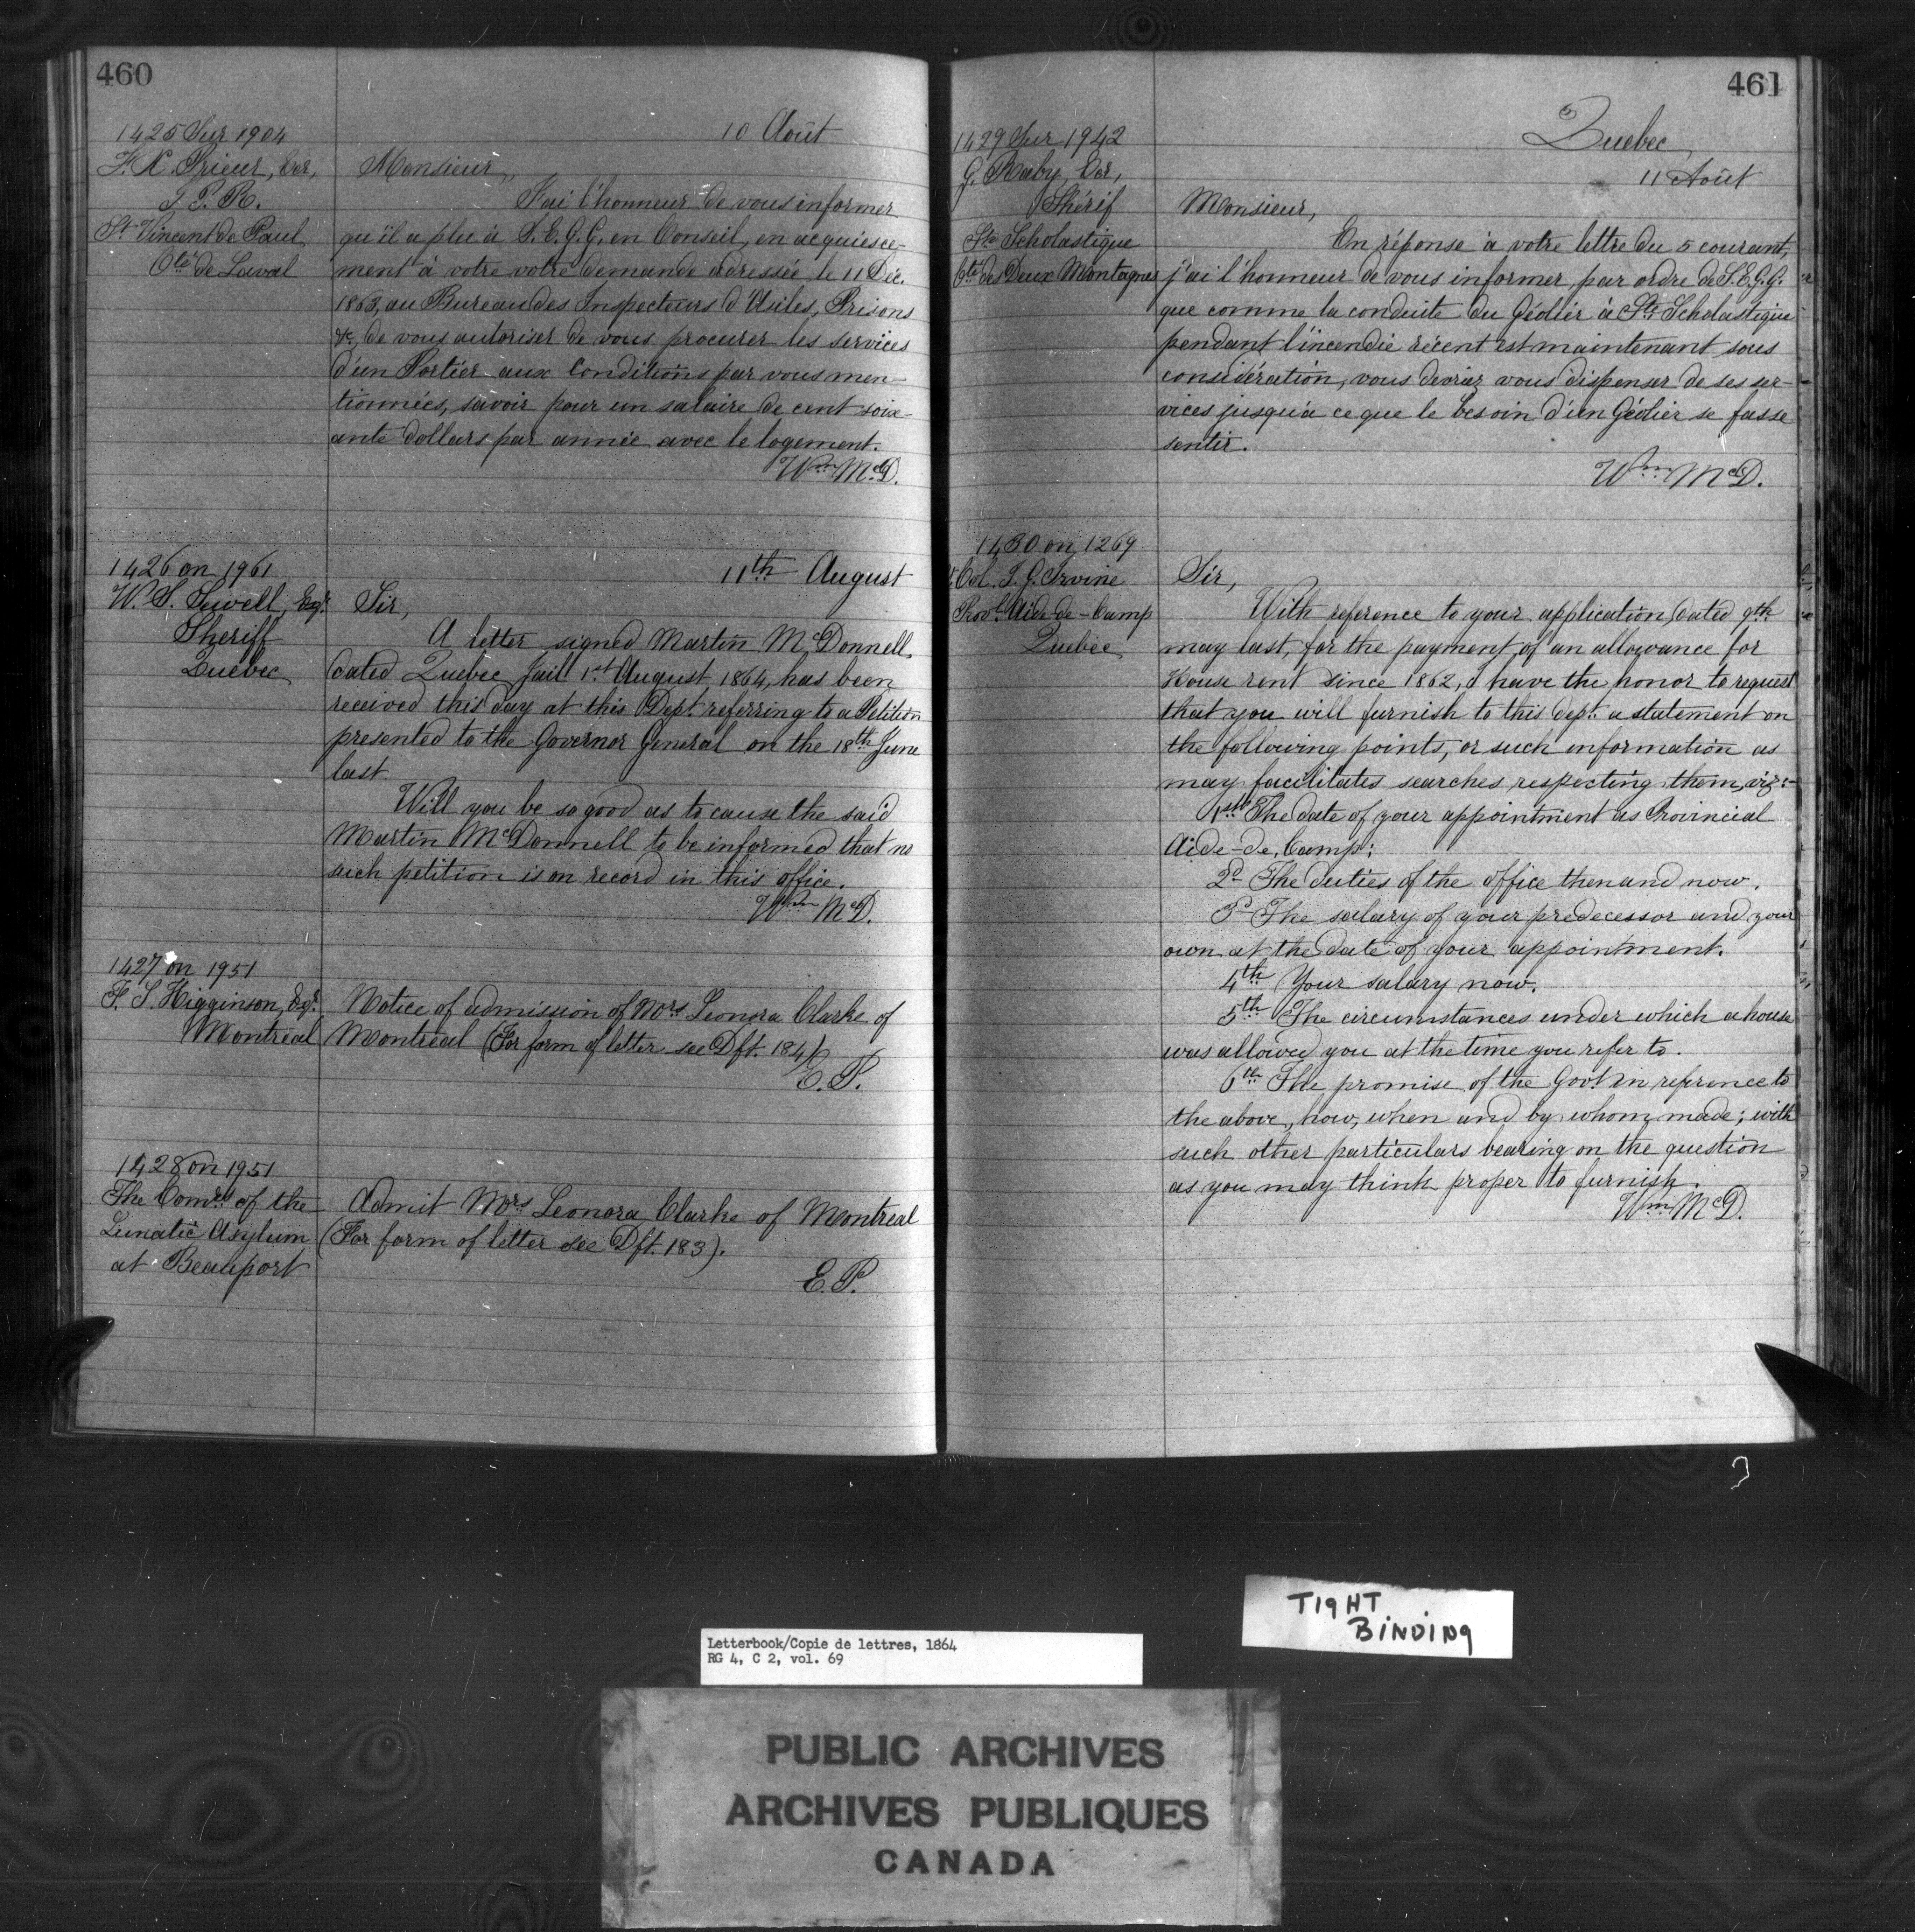 460
1425 Sur 1904
F. X. Prieur, Ecr,
S. P. R.
St Vincent de Paul
Cté de Laval
10 Août
Monsieur,
J'ai l'honneur de vous informer
qu'il a plu à S. E. G. G. en Conseil, en acquiesce-
ment à votre votre demande adressée le 11 Déc.
1863, au Bureau des Inspecteurs d'Asiles, Prisons
&c, de vous autoriser de vous procurer les services
d'un Portier aux Conditions par vous men-
tionnées, savoir pour un salaire de cent soix-
ante dollars par année avec le logement.
Wm McD.
1426 on 1961
W. S. Sewell, Esqr
Sheriff
Quebec
11th August
Sir,
A letter signed Martin McDonnell
dated Quebec Jail 1st August 1864, has been
received this day at this Dept. referring to a Petition
presented to the Governor General on the 18th June
last.
Will you be so good as to cause the said
Martin McDonnell to be informed that no
such petition is on record in this office.
Wm McD.
1427 on 1951
F. S. Higginson, Esqr
Montreal
Notice of admission of Mrs Leonora Clarke of
Montreal (For form of letter see Dft. 184)
E. P.
1428 on 1951
The Comrs of the
Lunatic Asylum
at Beauport
Admit Mrs Leonora Clarke of Montreal
(For form of letter see Dft. 183).
E. P.
461
Quebec
11 Août
1429 Sur 1942
G. Raby, Ecr,
Shérif
Ste Scholastique
Cté des Deux Montagnes
Monsieur,
En réponse à votre lettre du 5 courant,
j'ai l'honneur de vous informer, par ordre de S. E. G. G.
que comme la conduite du Géolier à Ste Scholastique
pendant l'incendie récent est maintenant sous
considération, vous devriez vous dispenser de ses ser-
vices jusqu'à ce que le besoin d'un Géolier se fasse
sentir.
Wm McD.
1430 on 1269
Col. J. G. Irvine
Provl Aide-de-Camp
Quebec
Sir,
With reference to your application, dated 9th
may last, for the payment of an allowance for
House rent since 1862, I have the honor to request
that you will furnish to this dept. a statement on
the following points, or such information as
may facilitates searches respecting them, viz:-
1st The date of your appointment as Provincial
Aide-de-Camp;
2d The duties of the office then and now.
3d The salary of your predecessor and your
own at the date of your appointment.
4th Your salary now.
5th The circumstances under which a house
was allowed you at the time you refer to.
6th The promise of the Govt in reference to
the above, how, when and by whom made; with
such other particulars bearing on the question
as you may think proper to furnish.
Wm McD.
TIGHT
BINDING
Letterbook/Copie de lettres, 1864
RG 4, C 2, vol. 69
PUBLIC ARCHIVES
ARCHIVES PUBLIQUES
CANADA